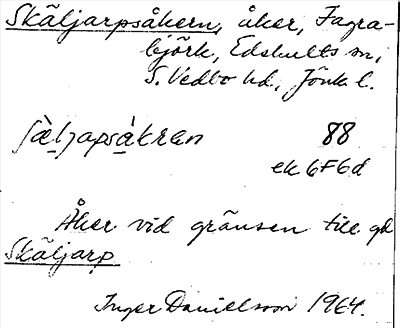 Skäljarpsåkern, åker, Fagra-
björk, Edshults sn,
S. Vedbo hd, Jönk l.
ʃä̀ḷjapsàkran 88
ek 6F6d
Åker vid gränsen till gd
Skäljarp
Inger Danielsson 1964.